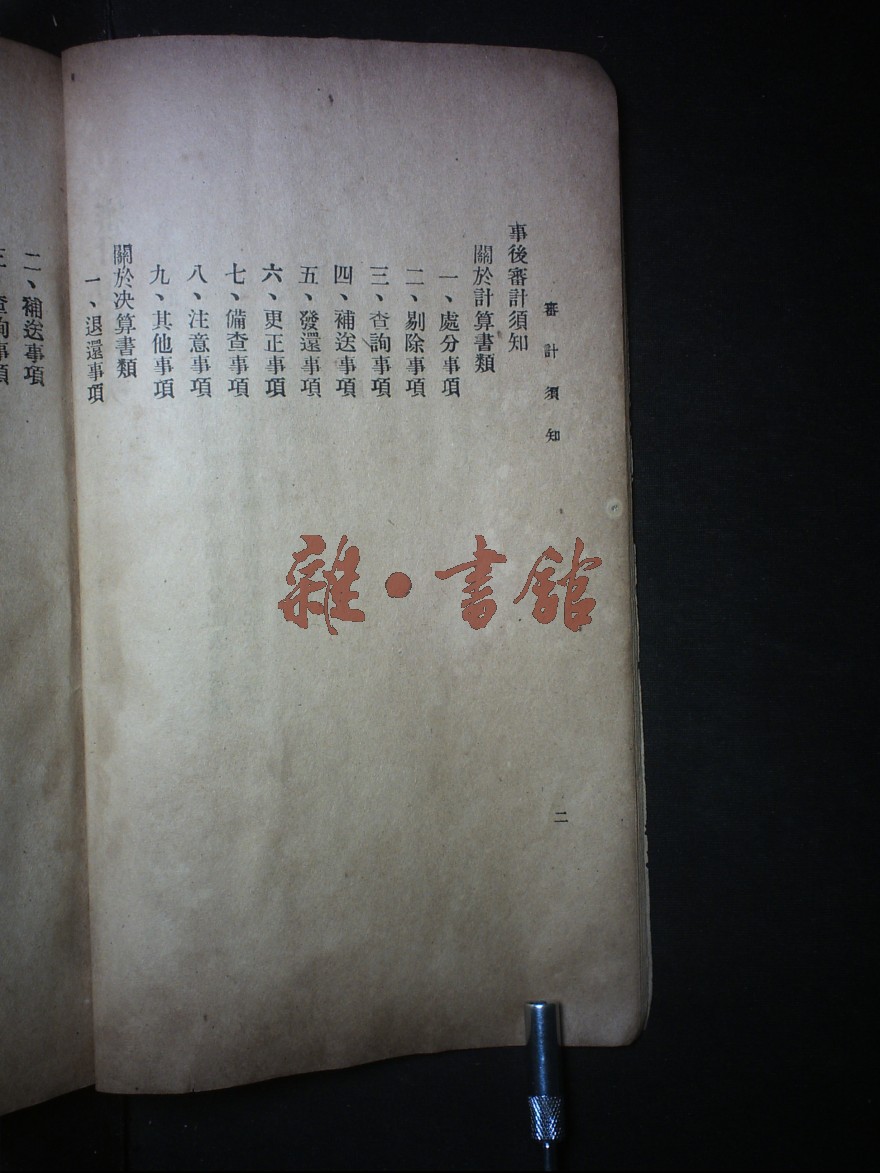 審計須知
事後審計須知
關於計算書類
一、處分事項
二、剔除事項
三、查詢事項
四、補送事項
五、發還事項
六、更正事項
七、備查事項
八、注意事項
九、其他事項
關於决算書類
一、退還事項
二
二、補送事項
三、查詢事項
雜·書館